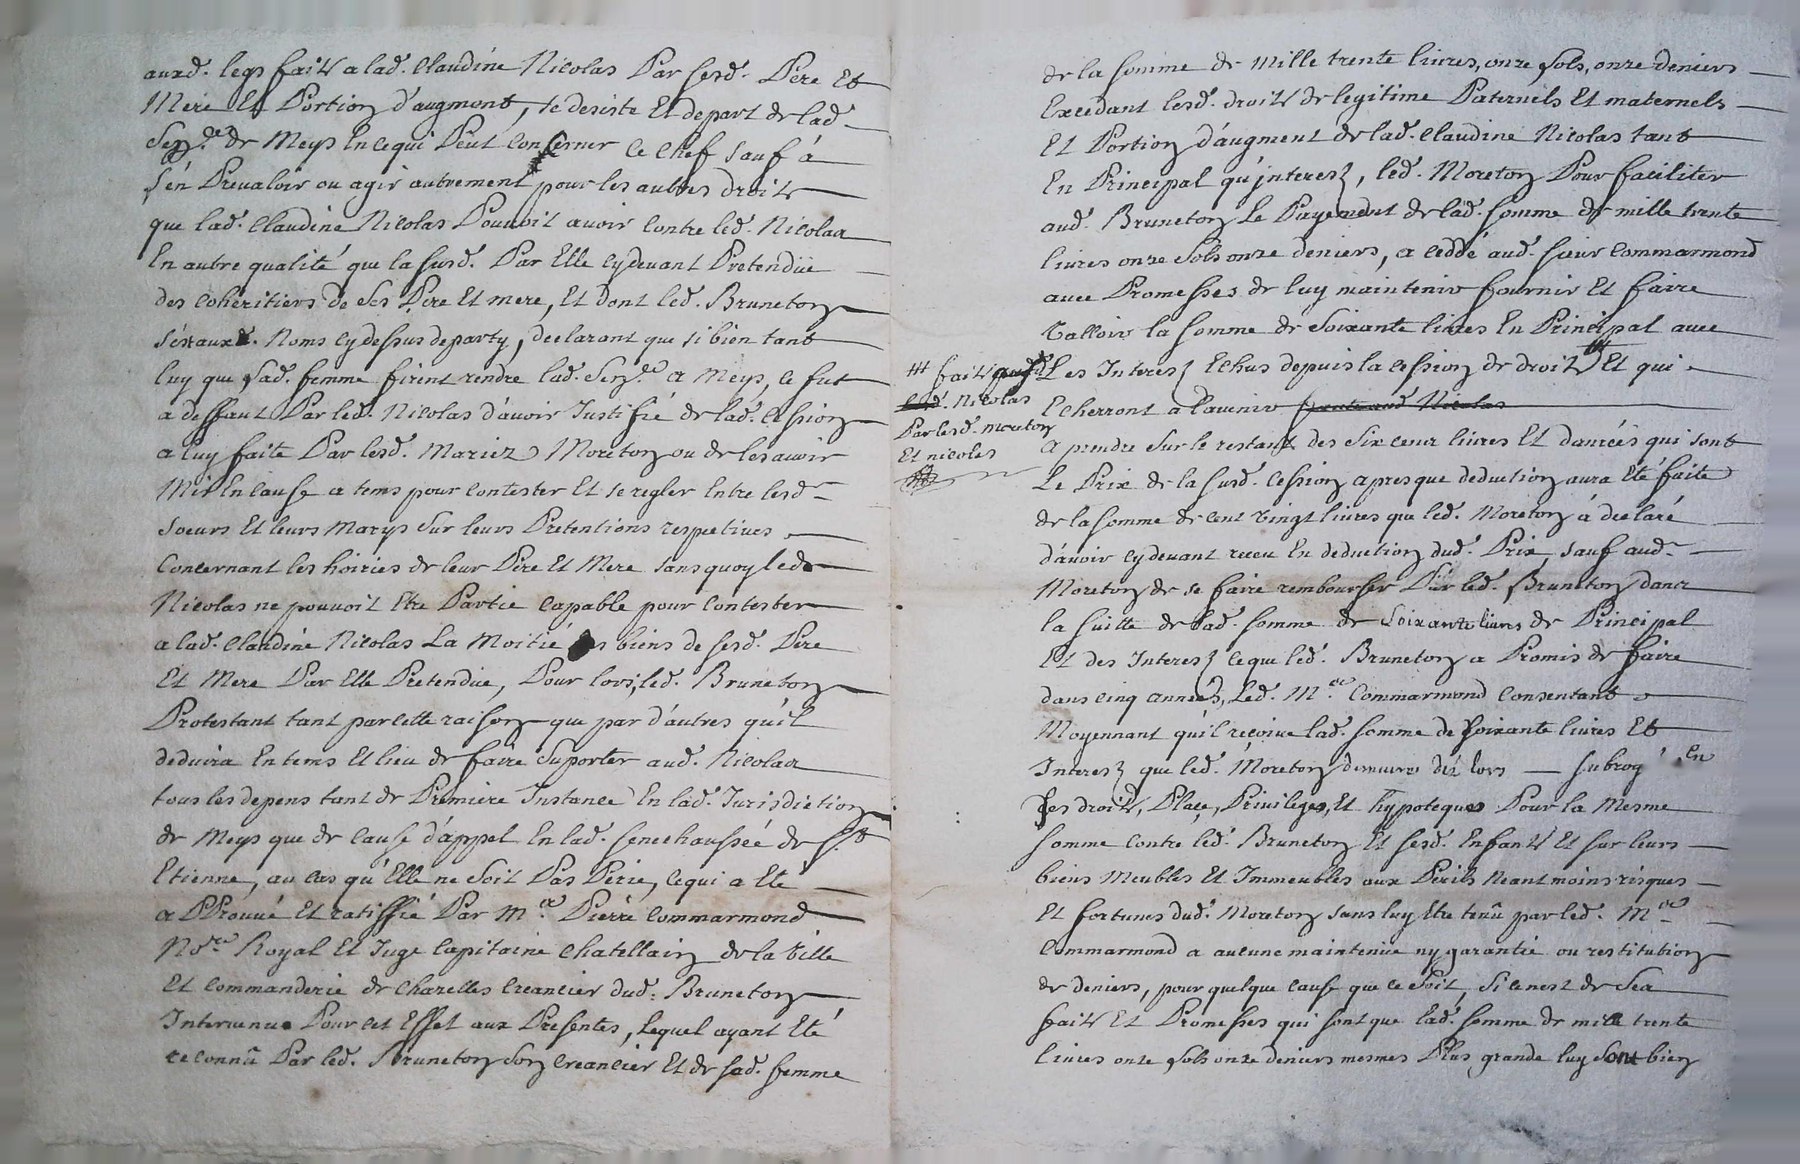 auxd. legs faits a lad. Claudine Nicolas Par sesd. Pere Et
Mere Et Portion d'augment, se desiste Et depart de lad.
Senz.ce de Meys En cequi Peut Concerner ce Chef sauf á
s'én Prevaloir ou agir autrement pour les autres droits
que lad. Claudine Nicolas Pouvoit avoir Contre led. Nicolas
En autre qualité que la susd. Par Elle cydevant Pretendüe
des coheritiers de Ses Pere Et mere, Et dont led. Bruneton
s'ést auxd. Noms cy dessus departy, declarant que si bien tant
luy que sad. femme firent rendre lad. Senz.ce a Meys, ce fut
a deffaut Par led. Nicolas d'avoir Justifié de lad. Cession
a luy faite Par lesd. Mariez Moreton ou de les avoir
Mis En cause a tems pour Contester Et se regler Entre lesd.
soeurs Et leurs Marys sur leurs Pretentions respectives
Concernant les hoiries de leur Pere Et Mere sans quoy led.
Nicolas ne pouvoit Etre Partie Capable pour Contester
a lad. Claudine Nicolas La Moitié des biens de sesd. Pere
Et Mere Par Elle Pretendüe, Pour lors, led. Bruneton
Protestant tant par cette raison que par d'autres qu'il
deduira En tems Et lieu de faire Suporter aud. Nicolas
tous les depens tant de Premiere Instance En lad. Jurisdiction
de Meys que de Cause d'áppel En lad. senechaussée de S.t
Etienne, au cas qu'Elle ne Soit Pas Perie, cequi a Eté
aPProuvé Et ratiffié Par M.e Pierre Commarmond
No.re Royal Et Juge Capitaine Chatellain de la Ville
Et Commanderie de Chazelles Creancier dud. Bruneton
Intervenu Pour cet Effet aux Presentes, Lequel ayant Eté
reconnû Par led. Bruneton Son Creancier Et de sad. femme
de la somme de Mille trente livres, onze sols, onze deniers
Excedant lesd. droits de legitime Paternels Et maternels
Et Portion d'áugment de lad. Claudine Nicolas tant
En Principal qu'jnterest, led. Moreton Pour faciliter
aud. Bruneton Le Payement de lad. somme de mille trente
livres onze Sols onze deniers, a ceddé aud. sieur Commarmond
avec Promesses de luy maintenir fournir Et faire
Valloir la somme de Soixante livres En Principal avec
Les Interest Echus depuis la cession de droits Et qui
Echerront a l'avenir
faits
Nicolas
Par lesd. moreton
Et nicolas
a prendre sur le restant des six cent livres Et danrées qui sont
Le Prix de la susd. Cession apres que deduction aura Eté faite
de la somme de cent Vingt livres que led. Moreton á declaré
d'ávoir cy devant receu En deduction dud. Prix, sauf aud.
Moreton de se faire rembourser Par led. Bruneton dans
la suitte de lad. somme de Soixante livres de Principal
Et des Interest ceque led. Bruneton a Promis de faire
dans cinq années, Led. M.e Commarmond Consentant
Moyennant qu'il reçoive lad. somme de soixante livres Et
Interest que led. Moreton demeure déz lors subrogé En
ses droits, Place, Privileges, Et hypoteques Pour la Mesme
somme Contre led. Bruneton Et sesd. Enfants Et sur leurs
biens Meubles Et Immeubles aux Perils Neantmoins risques
Et fortunes dud. Moreton sans luy Etre tenû par led. M.e
Commarmond a aucune maintenüe ny garantie ou restitution
de deniers, pour quelque Cause que ce Soit, Si ce nest de Ses
faits Et Promesses qui sont que lad. somme de mille trente
livres onze sols onze deniers mesmes Plus grande luy sont bien